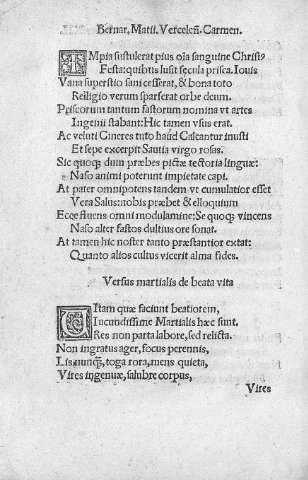 Bernar. Matii. Verceleñ. Carmen.
IMpia sustulerat pius oĩa sanguine Christꝰ
Festa: quibus lusit sęcula prisca. Iouis
Vana superstio sani cesserat, & bona toto
Relligio. verum sparserat orbe deum.
Priscorum tantum fastorum nomina vt artes
Ingenii stabant: Hic tamen vsus erat.
Ac veluti Cineres tuto haud Calcantur inusti
Et sepe excerpit Sautia virgo rosas.
Sic quoqꝫ dum præbes pictæ tectoria linguæ:
Naso animi poterunt impietate capi.
At pater omnipotens tandem vt cumulatior esset
Vera Salus: nobis præbet & elloquium
Ecce stuens omni modulamine: Se quoqꝫ vincens
Naso alter fastos dultius ore sonat.
At tamen hic noster tanto præstantior extat:
Quanto alios cultus vicerit alma fides.
Versus martialis de beata vita
VItam quæ faciunt beatiorem,
Iucundissime Martialis hæc sunt.
Res non parta labore, sed relicta.
Non ingratus ager, focus perennis,
Lis nunqꝫ, toga rora, mens quieta,
Vires ingenuæ, salubre corpus,
Vires